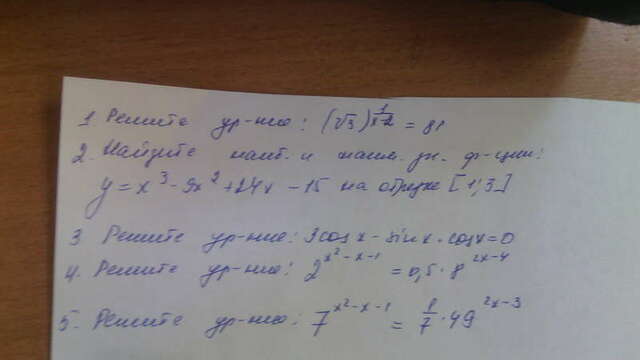 1. Решите ур-ние: (√3)^(1/(x-2)) = 81
2. Найдите наиб. и наим. зн. ф-ции:
y = x³ - 9x² + 24x - 15 на отрезке [1;3]
3 Решите ур-ние: 3cosx - sinx · cosx = 0
4. Решите ур-ние: 2^(x²-x-1) = 0,5 · 8^(2x-4)
5. Решите ур-ние: 7^(x²-x-1) = 1/7 · 49^(2x-3)